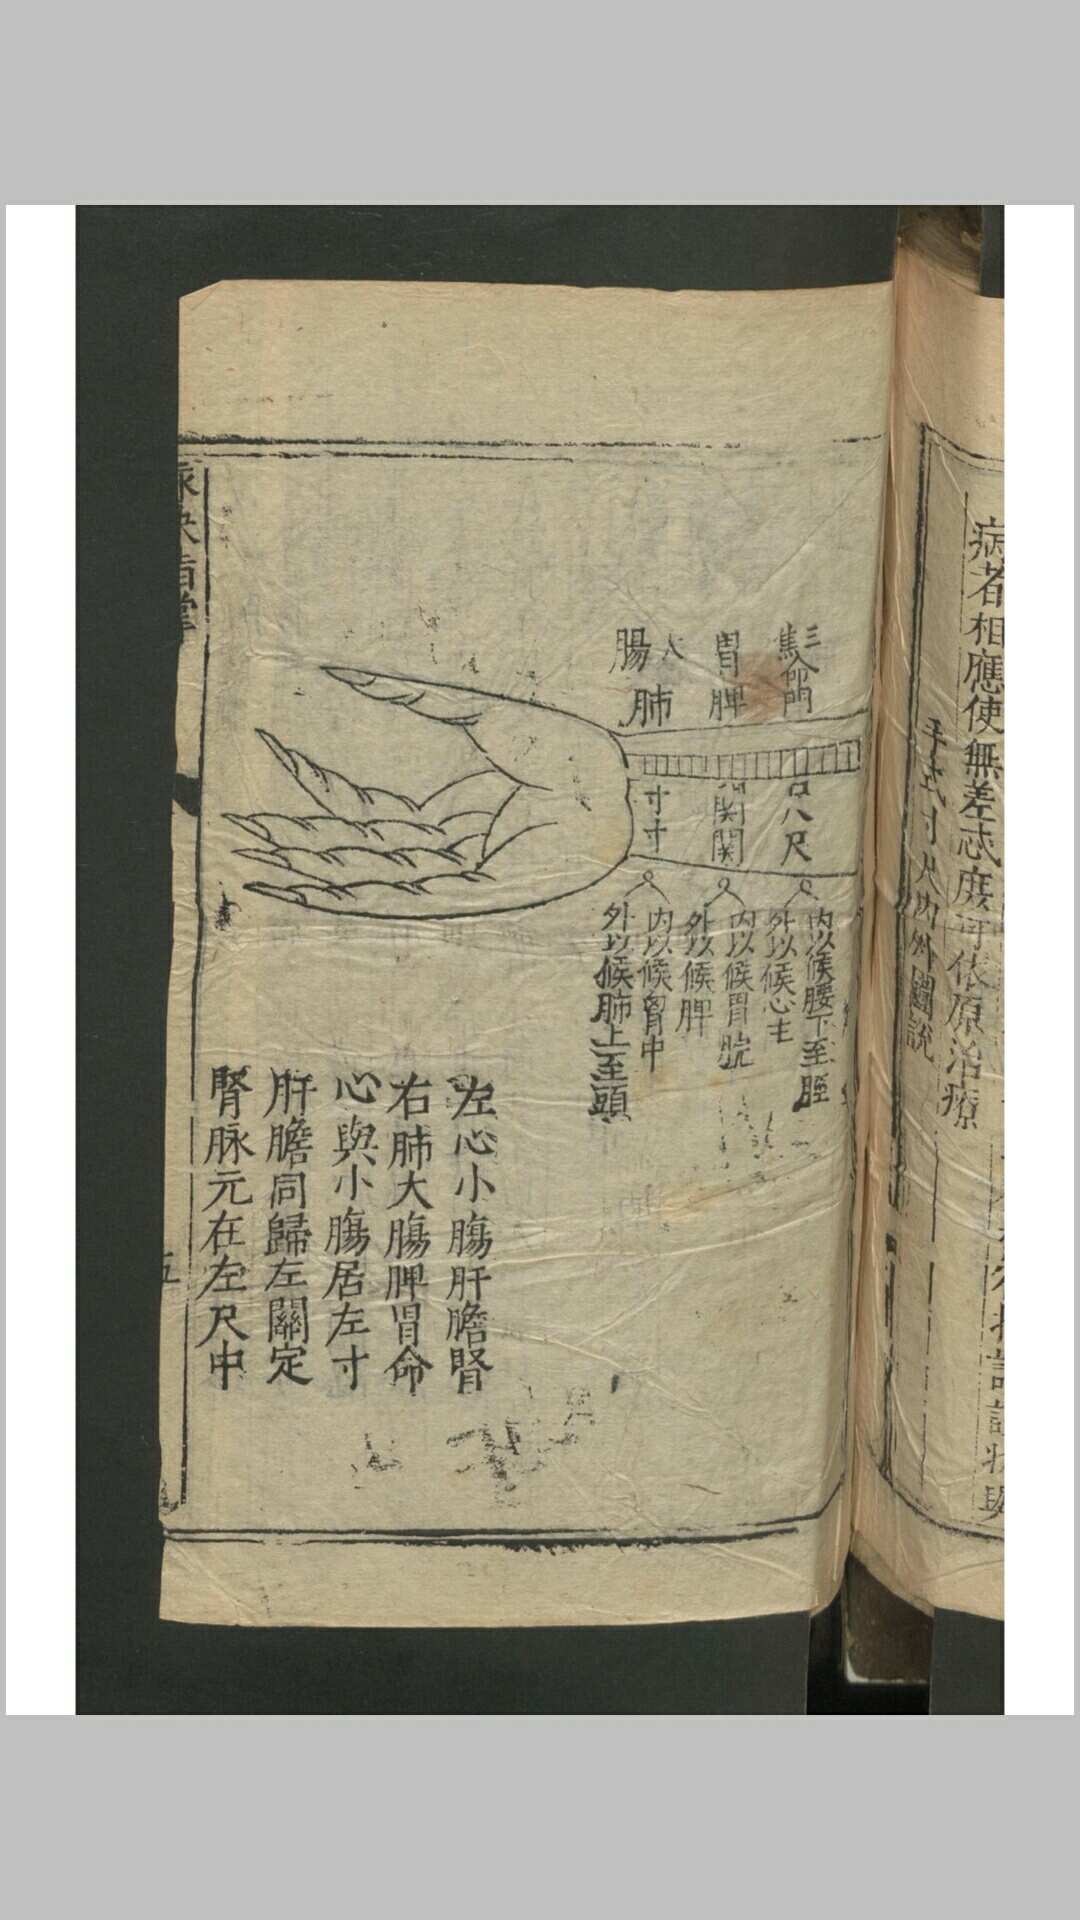 病者相應使無差忒庶可依原治療
手式寸尺內外圖說
三焦命門
胃脾
大腸肺
尺
關關
寸寸
內以候腰下至脛
外以候心主
內以候胃脘
外以候脾
內以候胷中
外以候肺上至頭
左心小膓肝膽腎
右肺大膓脾胃命
心與小膓居左寸
肝膽同歸左關定
腎脉元在左尺中
五